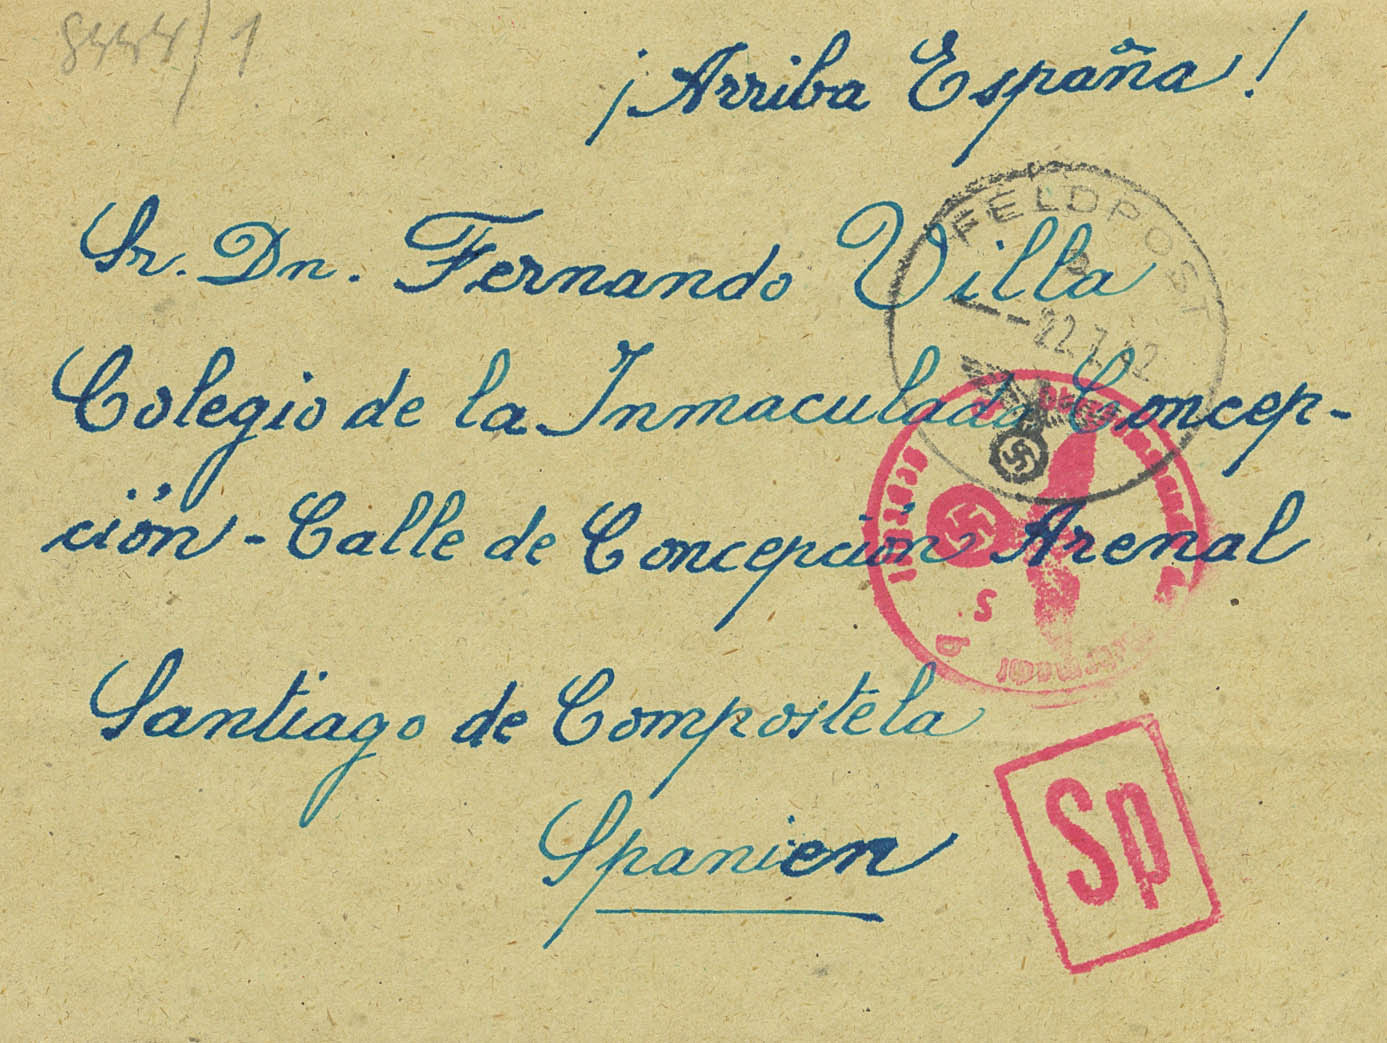 8444/1
¡Arriba España!
Sr. Dn. Fernando Villa
FELDPOST
22.7.42
Colegio de la Inmaculada Concep-
ción - Calle de Concepción Arenal
geprüft
b
Santiago de Compostela
Spanien
Sp